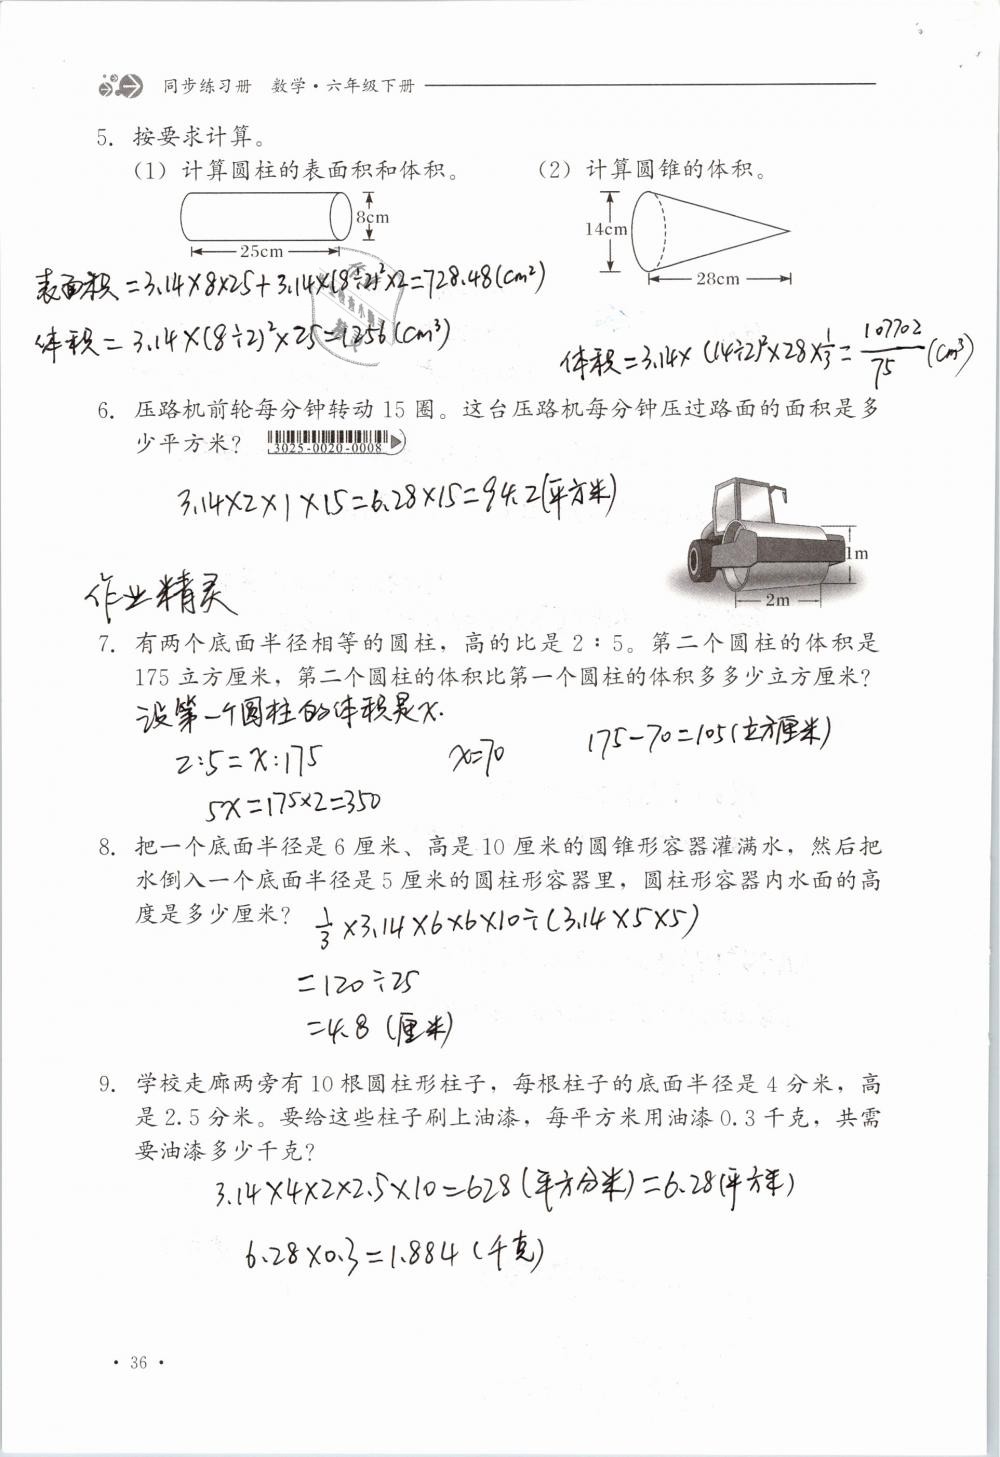 同步练习册 数学·六年级下册
5. 按要求计算。
(1) 计算圆柱的表面积和体积。 (2) 计算圆锥的体积。
8cm
25cm
14cm
28cm
表面积=3.14×8×25+3.14×(8÷2)²×2=728.48(cm²)
体积=3.14×(8÷2)²×25=1256(cm³)
体积=3.14×(14÷2)²×28×1/3=107702/75(cm³)
6. 压路机前轮每分钟转动 15 圈。这台压路机每分钟压过路面的面积是多
少平方米?
3025-0020-0008
3.14×2×1×15=6.28×15=94.2(平方米)
1m
2m
作业精灵
7. 有两个底面半径相等的圆柱，高的比是 2∶5。第二个圆柱的体积是
175 立方厘米，第二个圆柱的体积比第一个圆柱的体积多多少立方厘米?
设第一个圆柱的体积是x.
2:5=x:175 x=70 175-70=105(立方厘米)
5x=175×2=350
8. 把一个底面半径是 6 厘米、高是 10 厘米的圆锥形容器灌满水，然后把
水倒入一个底面半径是 5 厘米的圆柱形容器里，圆柱形容器内水面的高
度是多少厘米?
1/3×3.14×6×6×10÷(3.14×5×5)
=120÷25
=4.8 (厘米)
9. 学校走廊两旁有 10 根圆柱形柱子，每根柱子的底面半径是 4 分米，高
是 2.5 分米。要给这些柱子刷上油漆，每平方米用油漆 0.3 千克，共需
要油漆多少千克?
3.14×4×2×2.5×10=628(平方分米)=6.28(平方米)
6.28×0.3=1.884(千克)
·36·